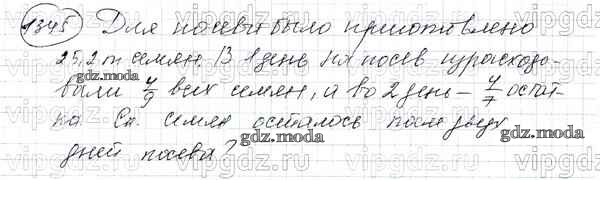 1345 Для посева было приготовлено
25,2 т семян. В 1 день на посев израсходо-
вали 4/9 всех семян, а во 2 день – 4/7 остат-
ка Ск. семян осталось после двух
дней посева?
gdz.moda
gdz.moda
gdz.moda
gdz.moda
vipgdz.ru